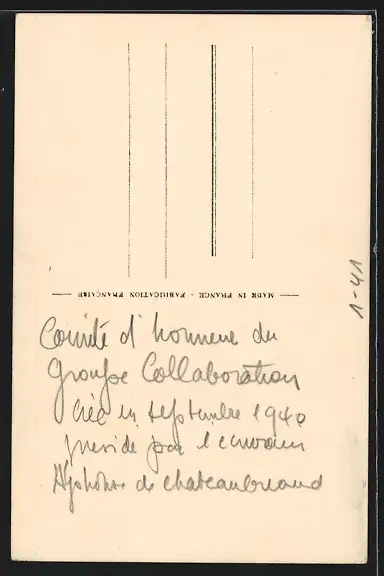 MADE IN FRANCE - FABRICATION FRANÇAISE
1-41
Comité d'honneur du
Groupe Collaboration
créé en septembre 1940
préside par l'écrivain
Alphonse de chateaubreaud